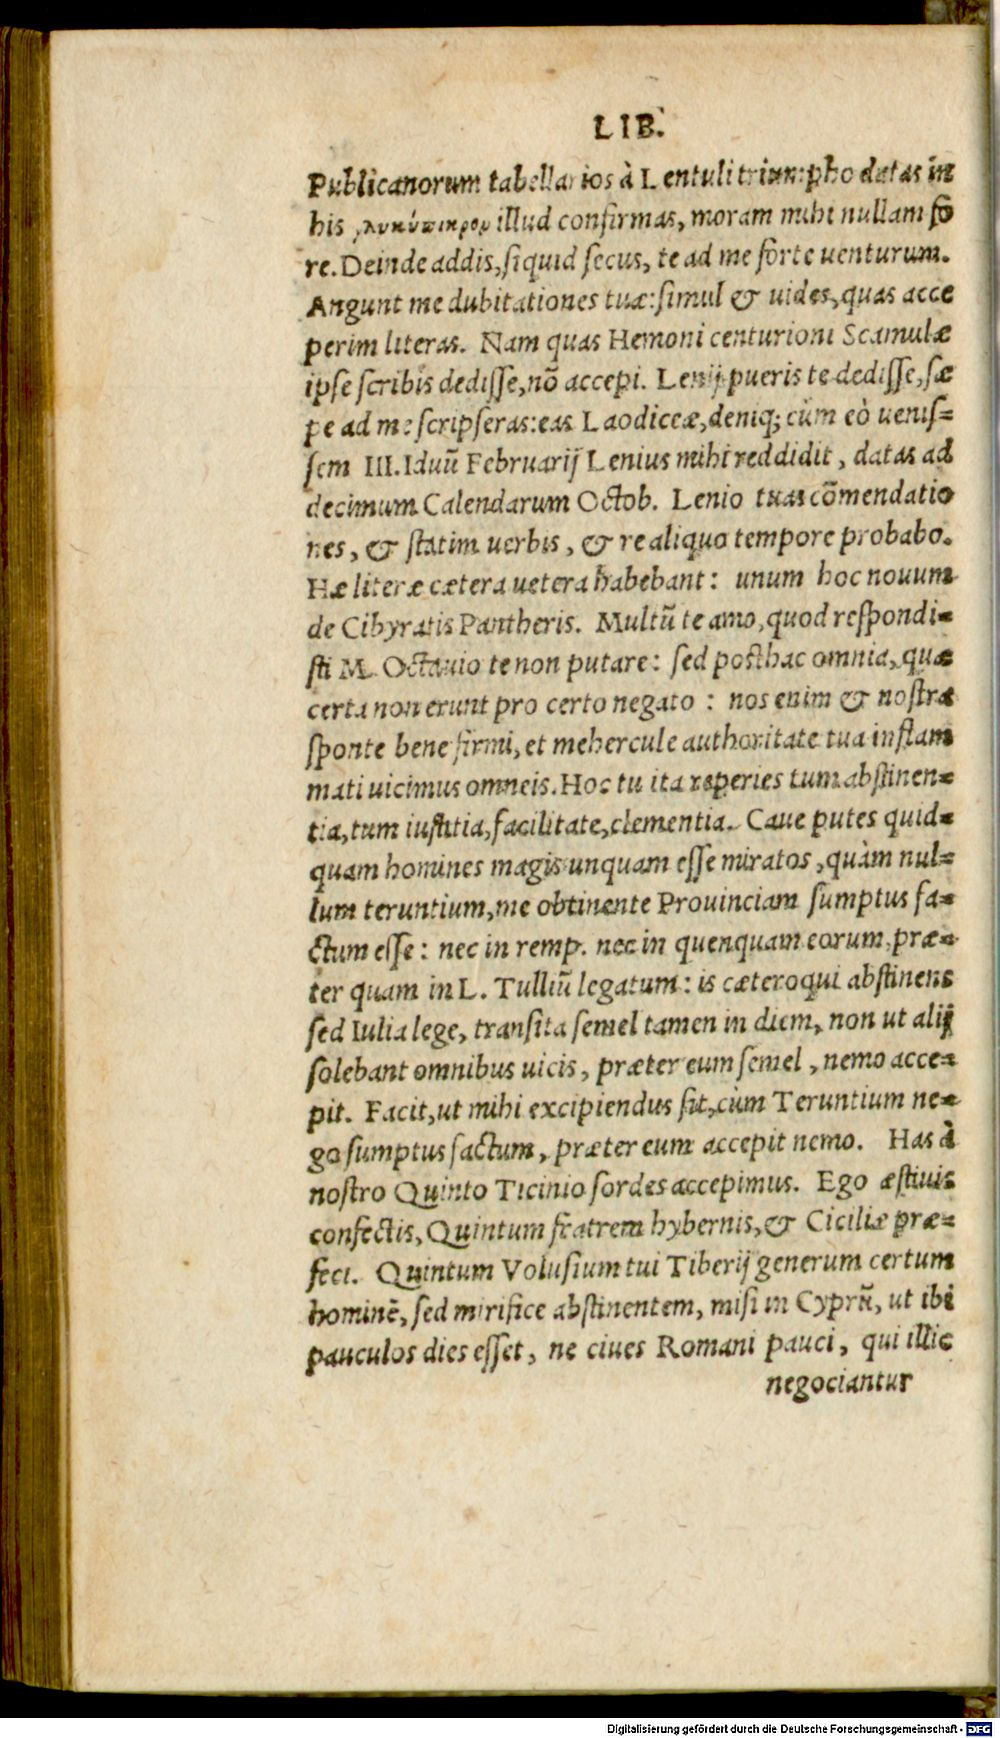 LIB.
Publicanorum tabellarios à Lentuli triumpho datas in
his γλυκύπικρον illud confirmas, moram mihi nullam fo
re. Deinde addis, siquid secus, te ad me forte uenturum.
Angunt me dubitationes tuæ: simul & uides, quas acce
perim literas. Nam quas Hemoni centurioni Scamulæ
ipse scribis dedisse, nõ accepi. Lenij pueris te dedisse, sæ
pe ad me scripseras: eas Laodiceæ, deniq; cùm eò uenis=
sem III. Iduũ Februarij Lenius mihi reddidit, datas ad
decimum Calendarum Octob. Lenio tuas cõmendatio
nes, & statim uerbis, & re aliquo tempore probabo.
Hæ literæ cætera uetera habebant: unum hoc nouum
de Cibyratis Pantheris. Multũ te amo, quod respondi=
sti M. Octauio te non putare: sed posthac omnia, quæ
certa non erunt pro certo negato: nos enim & nostra
sponte bene firmi, et mehercule authoritate tua inflam
mati uicimus omneis. Hoc tu ita reperies tum abstinen=
tia, tum iustitia, facilitate, clementia. Caue putes quid=
quam homines magis unquam esse miratos, quàm nul=
lum teruntium, me obtinente Prouinciam sumptus fa=
ctum esse: nec in remp. nec in quenquam eorum, præ=
ter quam in L. Tulliũ legatum: is cæteroqui abstinens
sed Iulia lege, transita semel tamen in diem, non ut alij
solebant omnibus uicis, præter eum semel, nemo acce=
pit. Facit, ut mihi excipiendus sit, cùm Teruntium ne=
go sumptus factum, præter eum accepit nemo. Has à
nostro Quinto Ticinio sordes accepimus. Ego æstiuis
confectis, Quintum fratrem hybernis, & Ciciliæ præ=
feci. Quintum Volusium tui Tiberij generum certum
hominẽ, sed mirifice abstinentem, misi in Cyprũ, ut ibi
pauculos dies esset, ne ciues Romani pauci, qui illic
negociantur
Digitalisierung gefördert durch die Deutsche Forschungsgemeinschaft - DFG